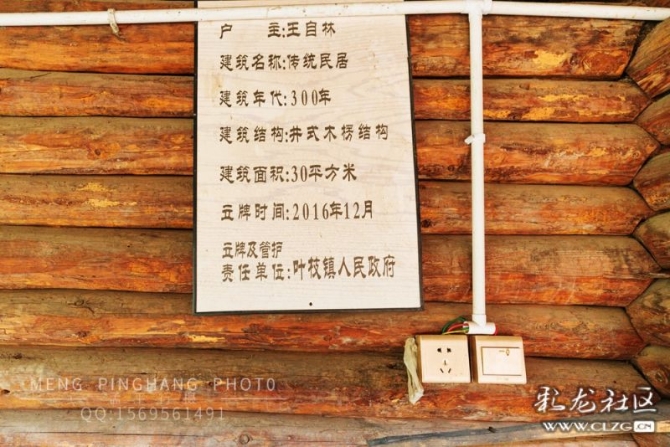 户 主:王自林
建筑名称:传统民居
建筑年代:300年
建筑结构:井式木楞结构
建筑面积:30平方米
立牌时间:2016年12月
立牌及管护
责任单位:叶枝镇人民政府
MENG PINGHANG PHOTO
QQ:1569561491
彩龙社区
WWW.CLZG.CN